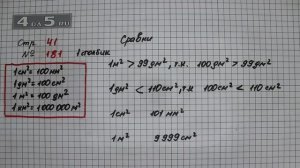 4 ДА 5 RU
Стр 41
№ 181 1 столбик
Сравни
1 см² = 100 мм²
1 дм² = 100 см²
1 м² = 100 дм²
1 км² = 1 000 000 м²
1 м² > 99 дм², т.к. 100 дм² > 99 дм²
1 дм² < 110 см², т.к. 100 см² < 110 см²
1 см² 101 мм²
1 м² 9 999 см²